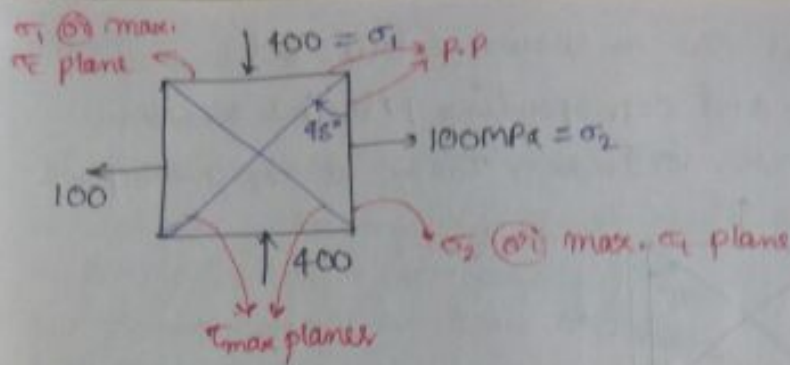 σ₁ (or) max.
σc plane
400 = σ₁
P.P
45°
100MPa = σ₂
100
σ₂ (or) max. σt plane
400
τmax planes